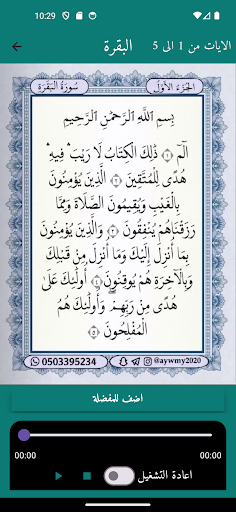 10:29
الايات من 1 الى 5
البقرة
الجُزءُ الأَوّلُ
سُورَةُ البَقَرَةِ
بِسْمِ اللَّهِ الرَّحْمَٰنِ الرَّحِيمِ
الٓمٓ ۝١ ذَٰلِكَ الْكِتَابُ لَا رَيْبَ ۛ فِيهِ ۛ
هُدًى لِلْمُتَّقِينَ ۝٢ الَّذِينَ يُؤْمِنُونَ
بِالْغَيْبِ وَيُقِيمُونَ الصَّلَاةَ وَمِمَّا
رَزَقْنَاهُمْ يُنْفِقُونَ ۝٣ وَالَّذِينَ يُؤْمِنُونَ
بِمَا أُنْزِلَ إِلَيْكَ وَمَا أُنْزِلَ مِنْ قَبْلِكَ
وَبِالْآخِرَةِ هُمْ يُوقِنُونَ ۝٤ أُولَٰئِكَ عَلَىٰ
هُدًى مِنْ رَبِّهِمْ ۖ وَأُولَٰئِكَ هُمُ
الْمُفْلِحُونَ ۝٥
0503395234
@aywmy2020
اضف للمفضلة
00:00
00:00
اعادة التشغيل